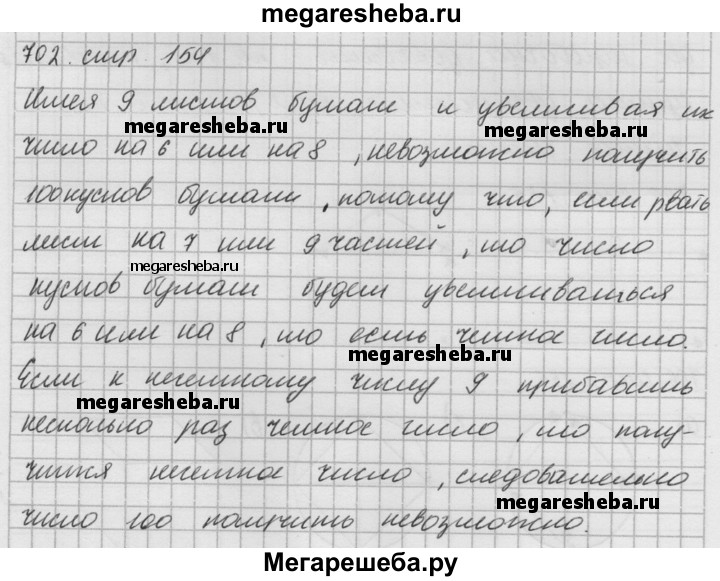 megaresheba.ru
702. стр 154
Имея 9 листов бумаги и увеличивая их
megaresheba.ru megaresheba.ru
число на 6 или на 8, невозможно получить
100 кусков бумаги, потому что, если рвать
лист на 7 или 9 частей, то число
megaresheba.ru
кусков бумаги будет увеличиваться
на 6 или на 8, то есть четное число.
megaresheba.ru
Если к нечетному числу 9 прибавить
megaresheba.ru
несколько раз четное число, то полу-
чится нечетное число, следовательно
megaresheba.ru
число 100 получить невозможно.
Мегарешеба.ру